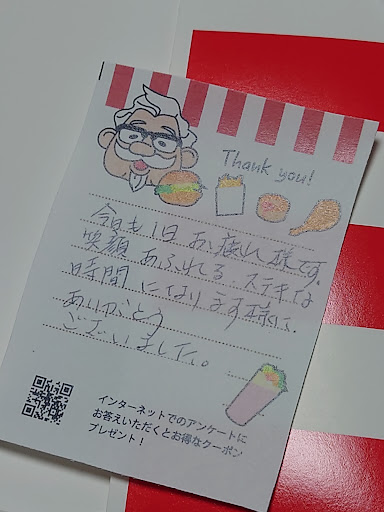 Thank you!
今日も1日お疲れ様です。
笑顔あふれる ステキな
時間になります様に。
ありがとう
ございました。
インターネットでのアンケートに
お答えいただくとお得なクーポン
プレゼント！